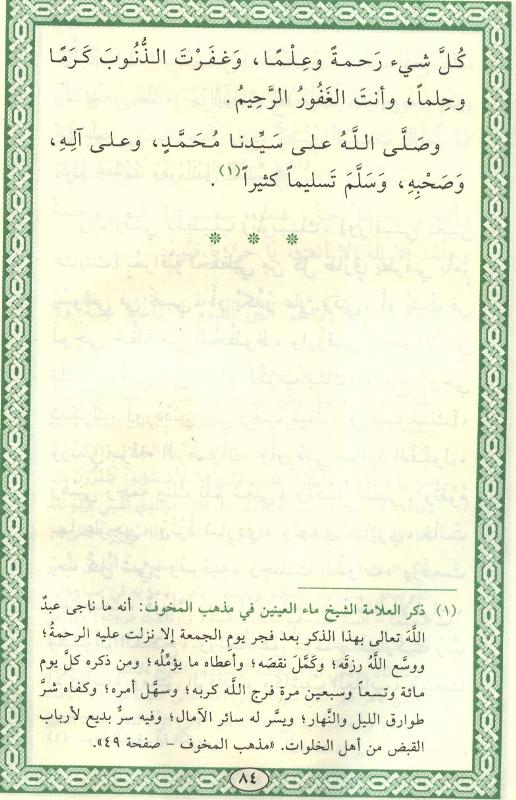 كُلَّ شيء رَحمةً وعِلْمًا، وَغفَرْتَ الذُّنُوبَ كَرَمًا
وحِلماً، وأنتَ الغَفُورُ الرَّحِيمُ.
وصَلَّى اللَّهُ على سَيِّدنا مُحَمَّدٍ، وعلى آلِهِ،
وَصَحْبِهِ، وَسَلَّمَ تَسليماً كثيراً(١).
* * *
(١) ذكر العلامة الشيخ ماء العينين في مذهب المخوف: أنه ما ناجى عبدٌ
اللَّهَ تعالى بهذا الذكر بعد فجر يوم الجمعة إلا نزلت عليه الرحمةُ؛
ووسَّع اللَّهُ رزقَه؛ وكَمَّلَ نقصَه؛ وأعطاه ما يؤمِّلُه؛ ومن ذكره كلَّ يوم
مائة وتسعاً وسبعين مرة فرج اللَّه كربه؛ وسهَّل أمره؛ وكفاه شرَّ
طوارق الليل والنَّهار؛ ويسَّر له سائر الآمال؛ وفيه سرٌّ بديع لأرباب
القبض من أهل الخلوات. «مذهب المخوف - صفحة ٤٩».
٨٤